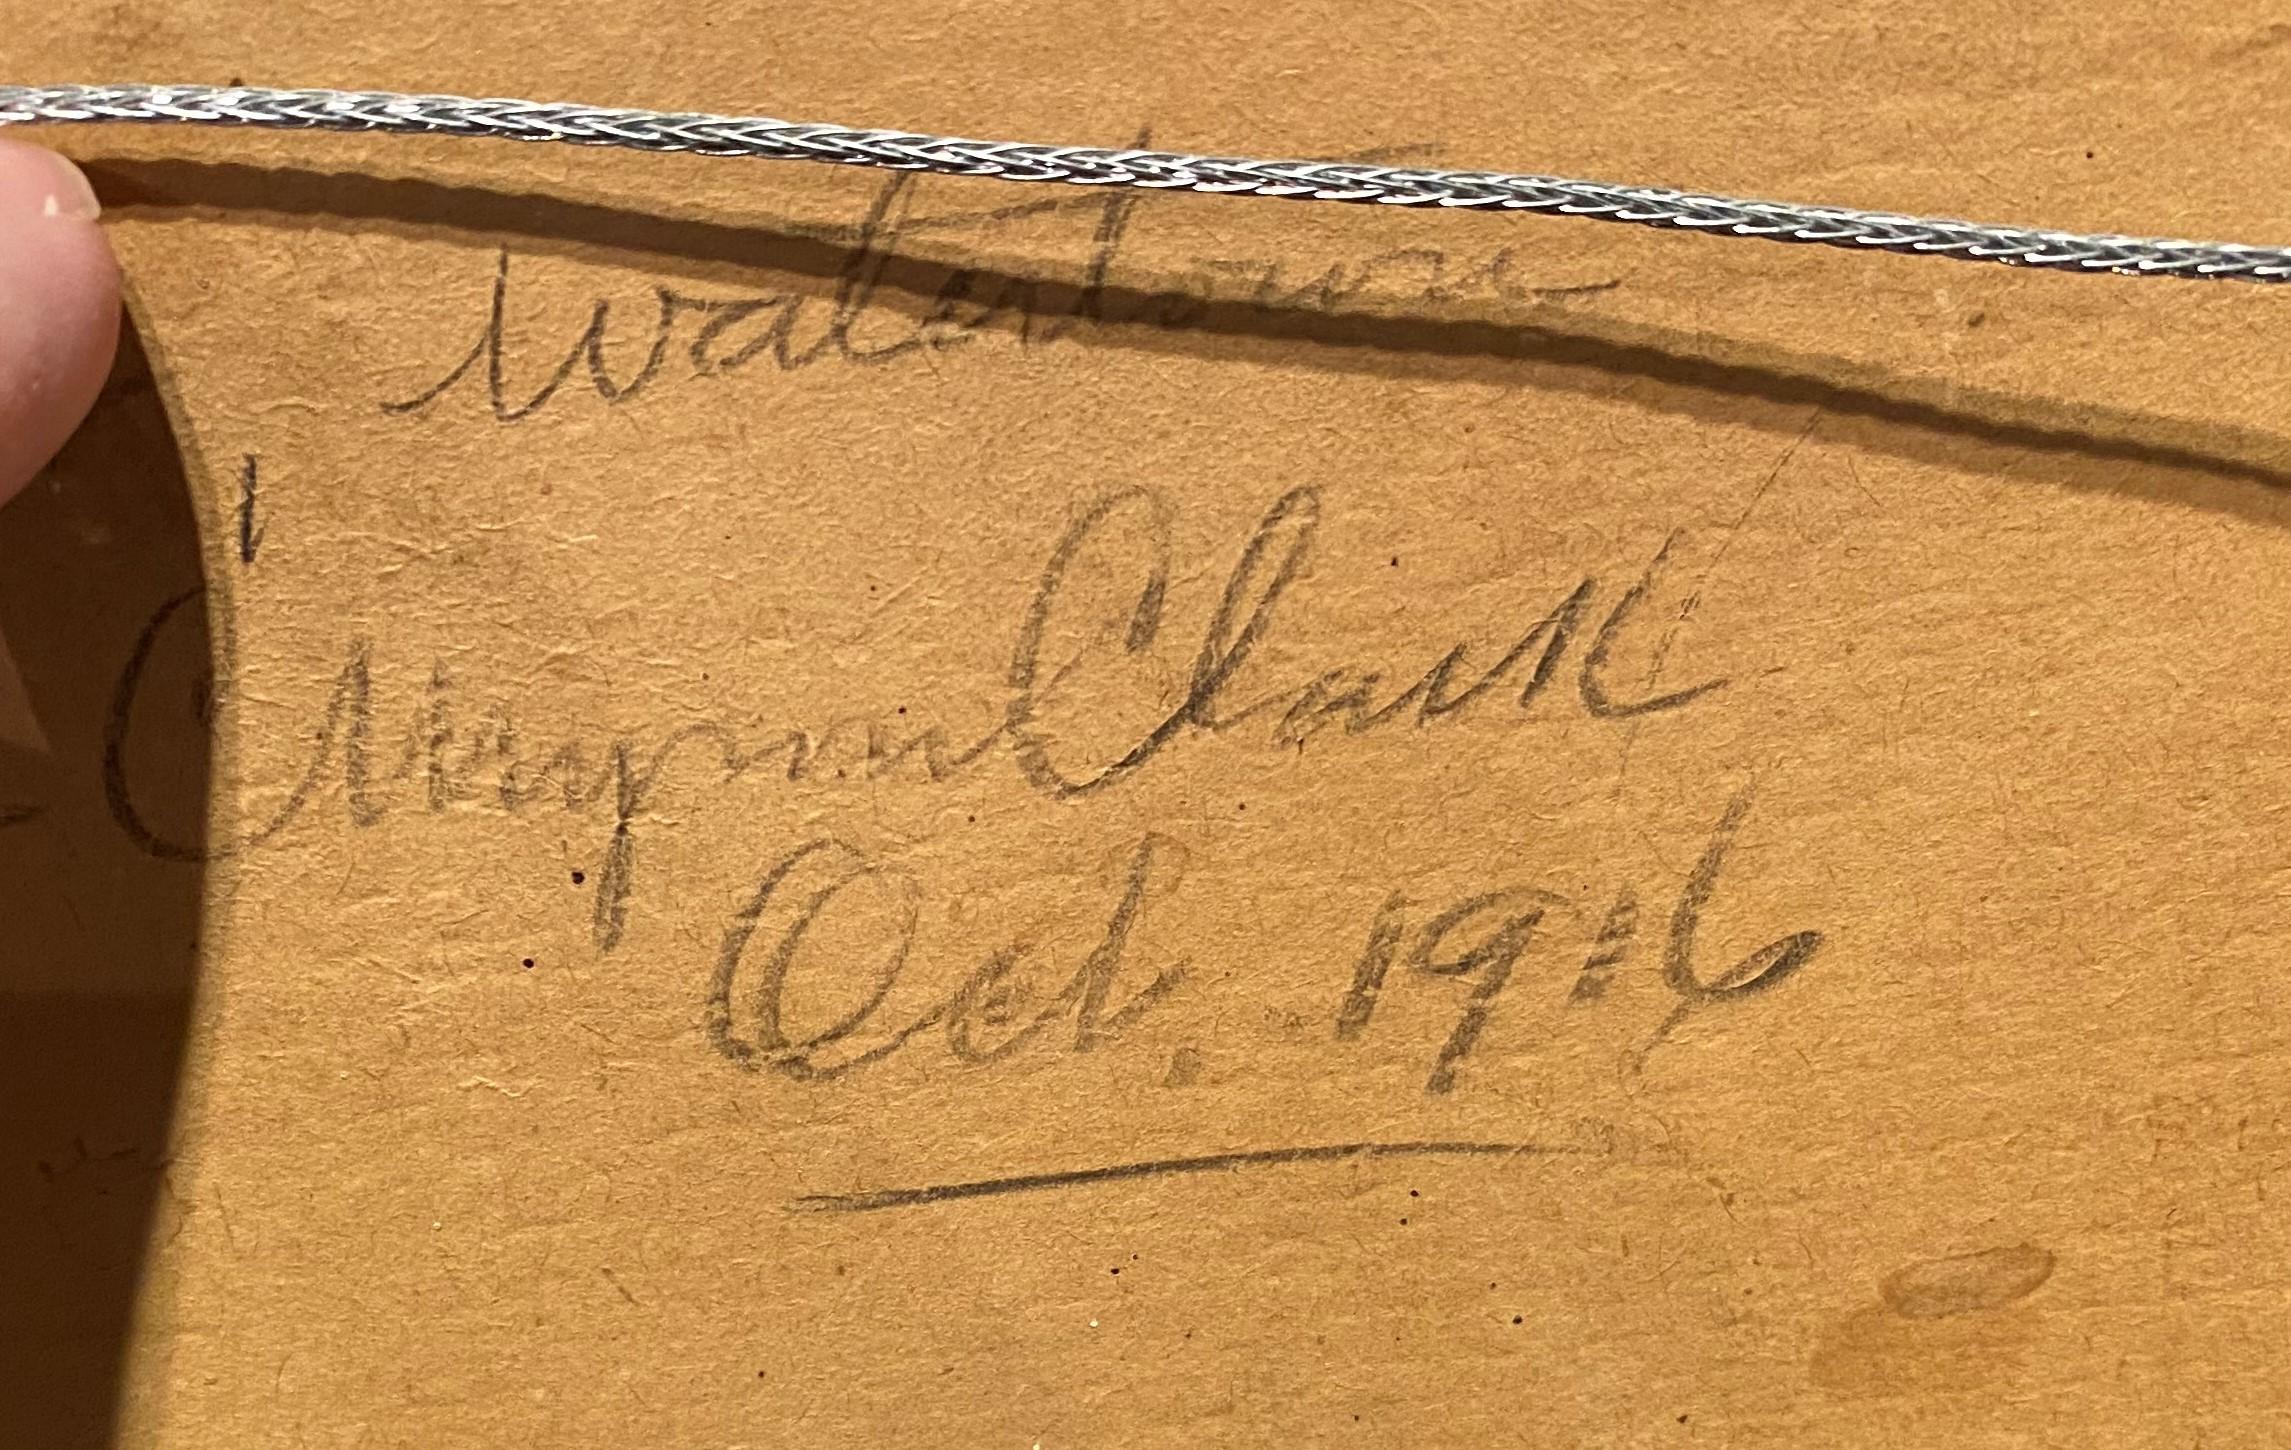 Watertown
Clark
Oct. 1916